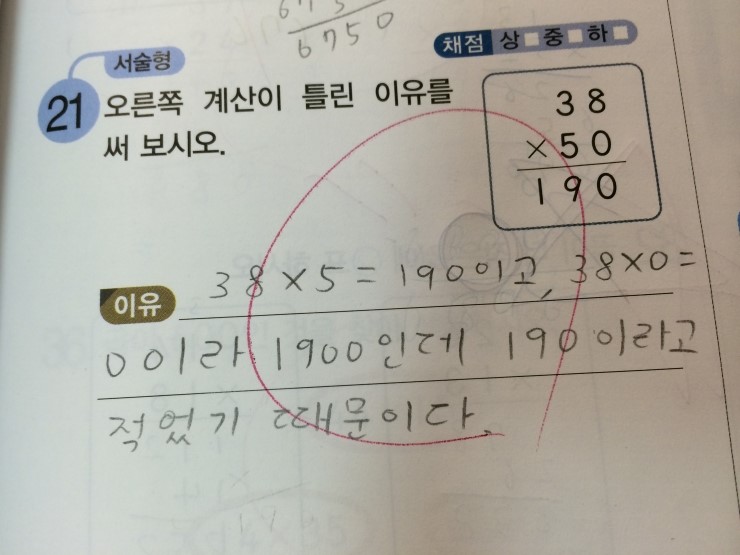 6750
채점 상 중 하
서술형
21 오른쪽 계산이 틀린 이유를
써 보시오.
38
×50
190
이유 38×5=190이고, 38×0=
0이라 1900인데 190이라고
적었기 때문이다.